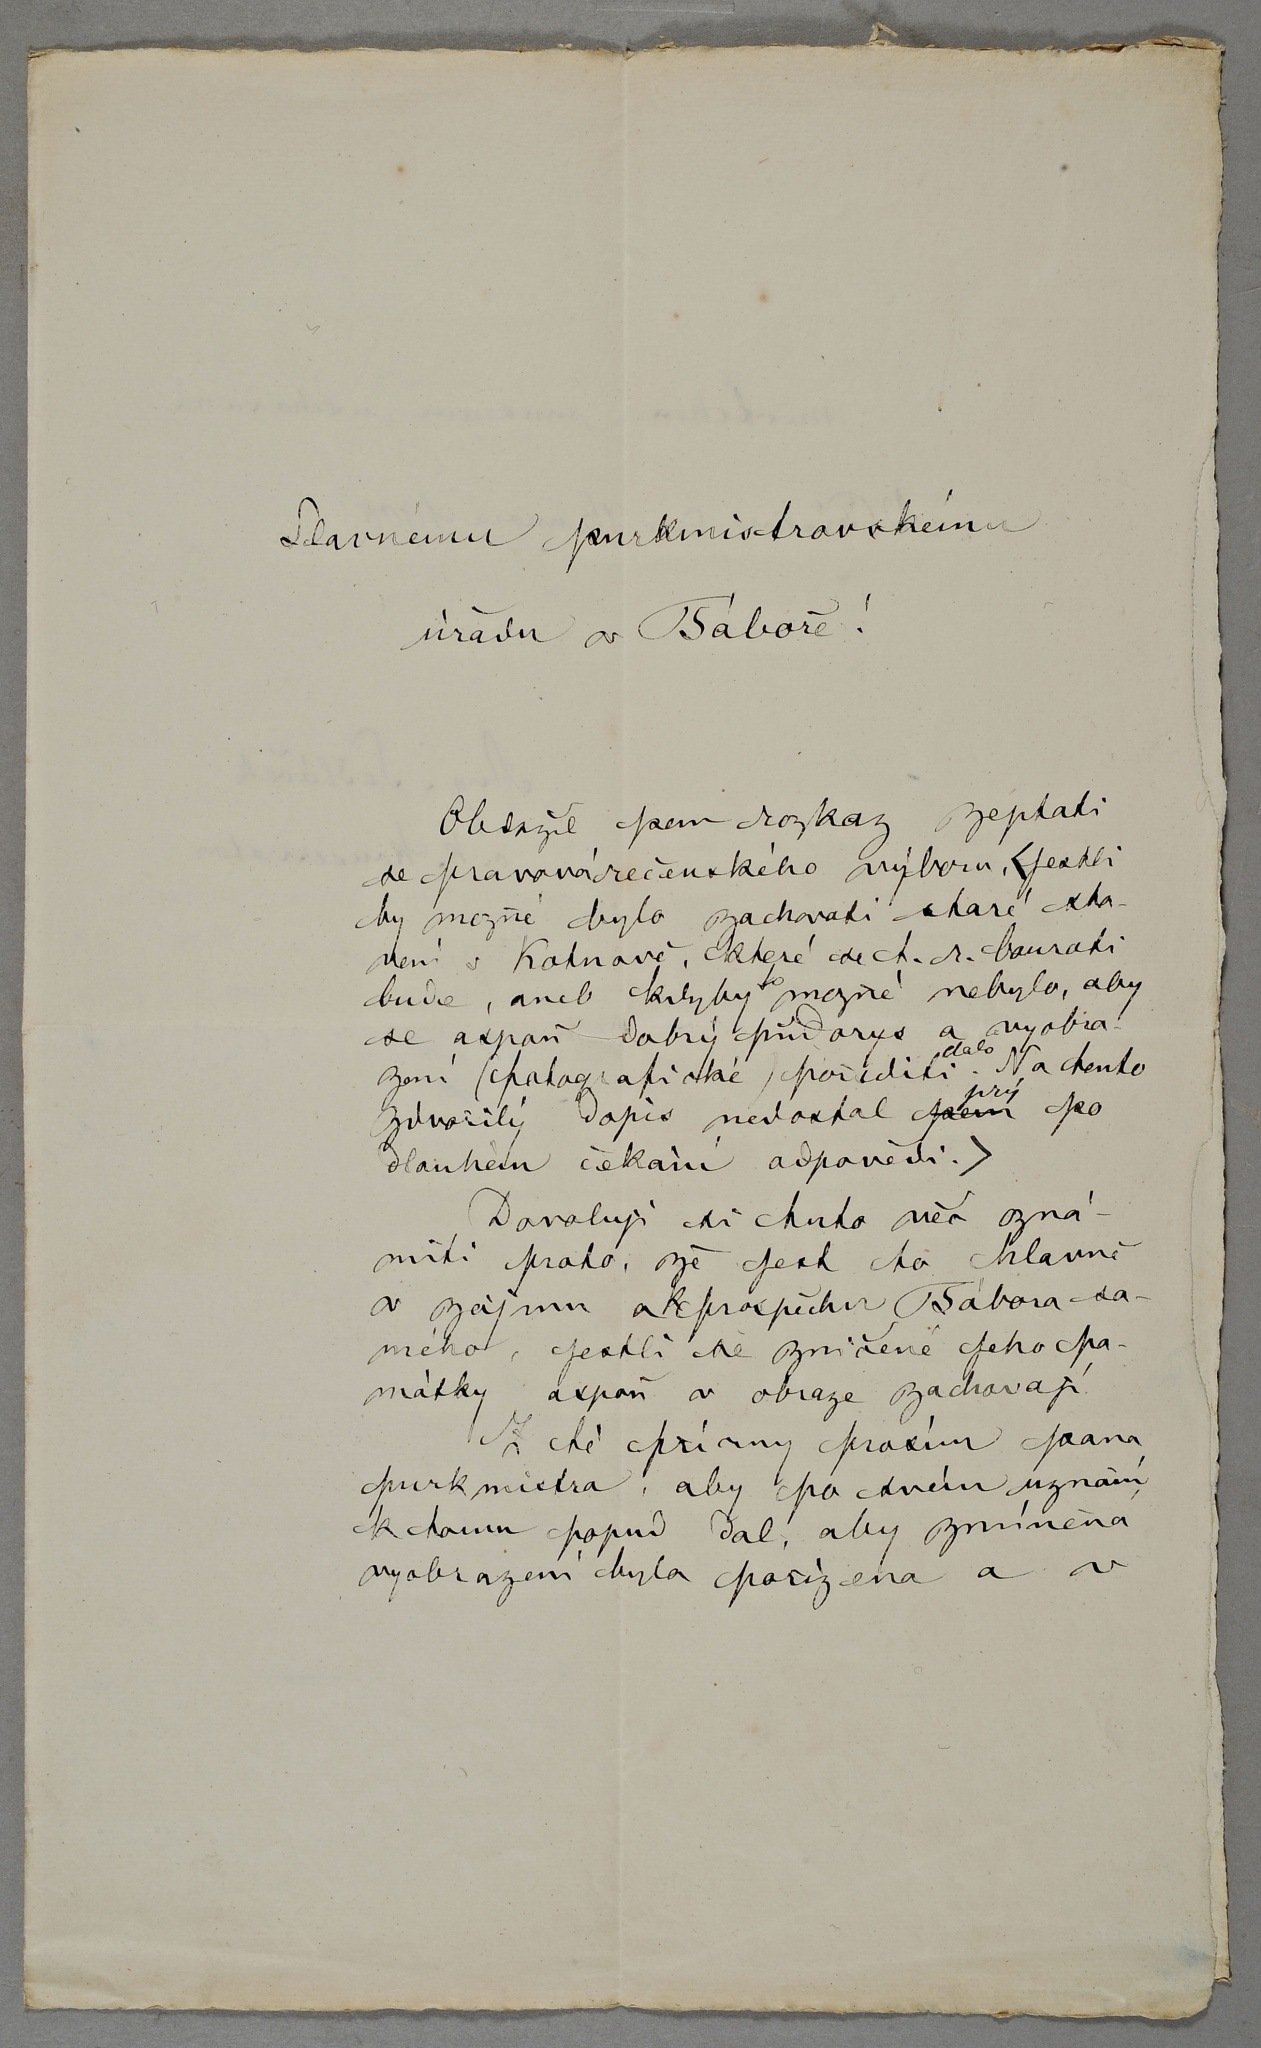 Slavnému purkmistrovskému
úřadu v Táboře!
Obdržel jsem rozkaz zeptati
se pravovárečenského výboru, <jestli
by možné bylo zachovati staré sta-
vení v Kotnově, které se t. r. bourati
bude, aneb kdyby to možné nebylo, aby
se aspoň dobrý půdorys a vyobra-
zení (fotografické) poříditi dalo. Na tento
zdvořilý dopis nedostal jsem prý po
dlouhém čekání odpovědi.>
Dovoluji si tuto věc ozná-
miti proto, že jest to hlavně
v zájmu a k prospěchu Tábora sa-
mého, jestli se zničené jeho pa-
mátky aspoň v obraze zachovají.
Z té příčiny prosím pana
purkmistra, aby po svém uznání
k tomu popud dal, aby zmíněná
vyobrazení byla pořízena a v